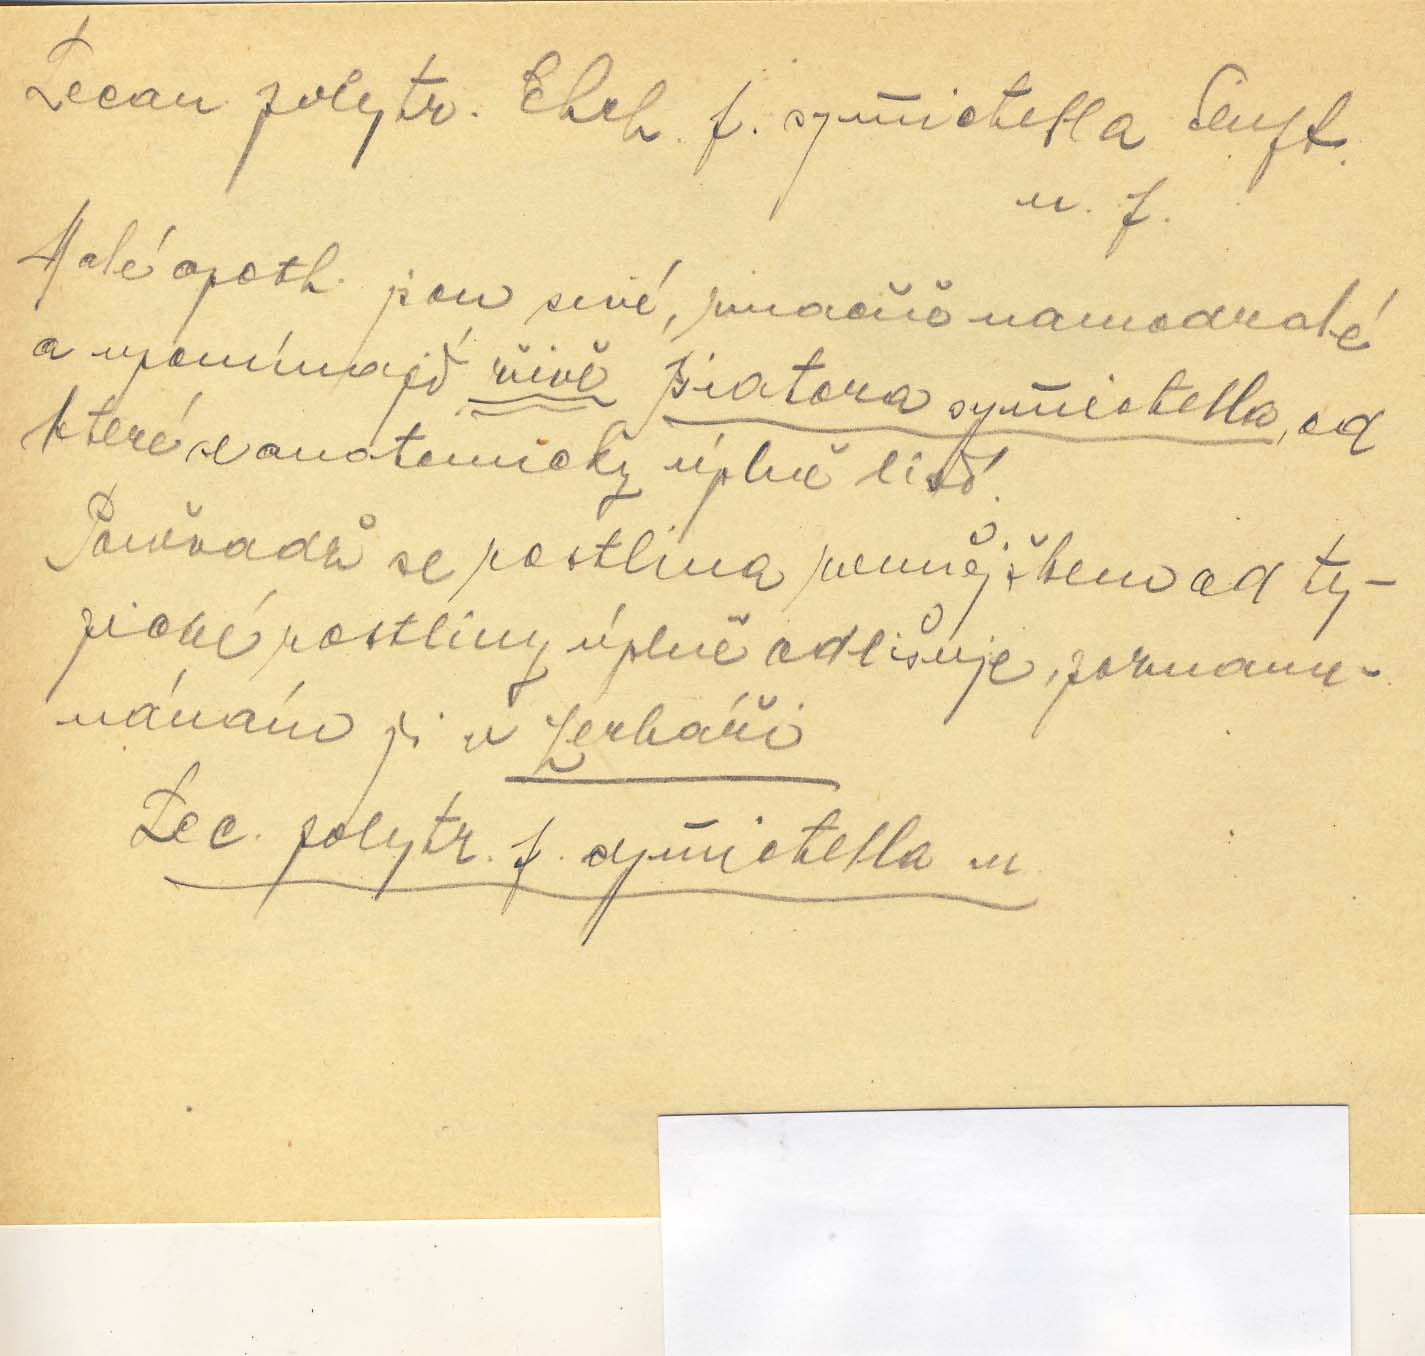 Lecan polytr. Ehrh. f. sym̄ictella Senft.
n. f.
Malé apoth. jsou sivé, namodralé
a upomínají živě Biatora sym̄ictella, od
které se anatomicky úplně liší.
Poněvadž se rostlina zevnějškem od ty-
pické rostliny úplně odlišuje, pozname-
návám ji v herbáři
Lec. polytr. f. sym̄ictella m